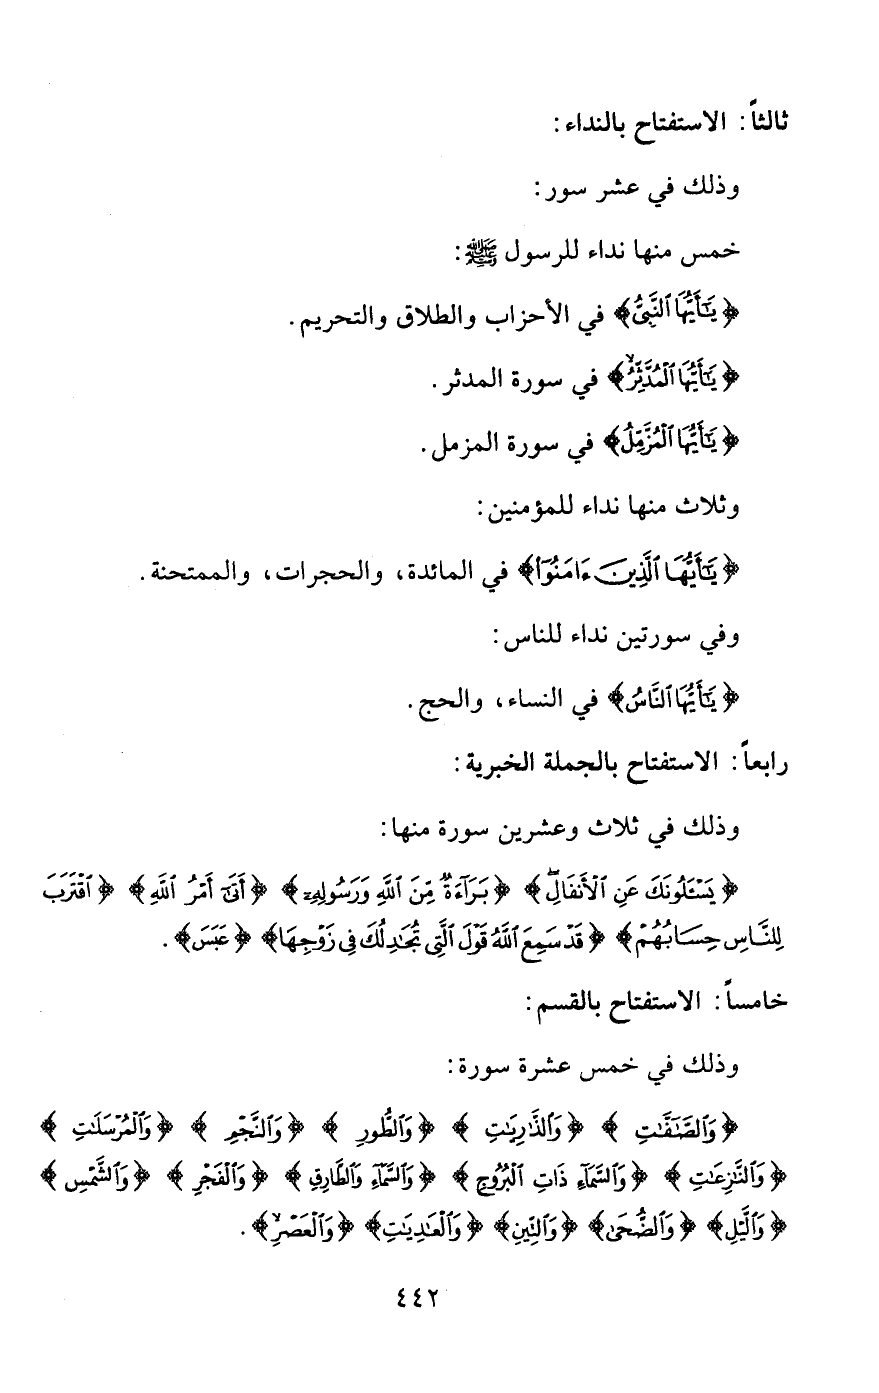 ثالثاً: الاستفتاح بالنداء:
وذلك في عشر سور:
خمس منها نداء للرسول ﷺ:
﴿يَٰٓأَيُّهَا ٱلنَّبِيُّ﴾ في الأحزاب والطلاق والتحريم.
﴿يَٰٓأَيُّهَا ٱلْمُدَّثِّرُ﴾ في سورة المدثر.
﴿يَٰٓأَيُّهَا ٱلْمُزَّمِّلُ﴾ في سورة المزمل.
وثلاث منها نداء للمؤمنين:
﴿يَٰٓأَيُّهَا ٱلَّذِينَ ءَامَنُوٓا۟﴾ في المائدة، والحجرات، والممتحنة.
وفي سورتين نداء للناس:
﴿يَٰٓأَيُّهَا ٱلنَّاسُ﴾ في النساء، والحج.
رابعاً: الاستفتاح بالجملة الخبرية:
وذلك في ثلاث وعشرين سورة منها:
﴿يَسْـَٔلُونَكَ عَنِ ٱلْأَنفَالِۖ﴾ ﴿بَرَآءَةٌ مِّنَ ٱللَّهِ وَرَسُولِهِۦٓ﴾ ﴿أَتَىٰٓ أَمْرُ ٱللَّهِ﴾ ﴿ٱقْتَرَبَ
لِلنَّاسِ حِسَابُهُمْ﴾ ﴿قَدْ سَمِعَ ٱللَّهُ قَوْلَ ٱلَّتِي تُجَٰدِلُكَ فِي زَوْجِهَا﴾ ﴿عَبَسَ﴾.
خامساً: الاستفتاح بالقسم:
وذلك في خمس عشرة سورة:
﴿وَٱلصَّٰٓفَّٰتِ﴾ ﴿وَٱلذَّٰرِيَٰتِ﴾ ﴿وَٱلطُّورِ﴾ ﴿وَٱلنَّجْمِ﴾ ﴿وَٱلْمُرْسَلَٰتِ﴾
﴿وَٱلنَّٰزِعَٰتِ﴾ ﴿وَٱلسَّمَآءِ ذَاتِ ٱلْبُرُوجِ﴾ ﴿وَٱلسَّمَآءِ وَٱلطَّارِقِ﴾ ﴿وَٱلْفَجْرِ﴾ ﴿وَٱلشَّمْسِ﴾
﴿وَٱلَّيْلِ﴾ ﴿وَٱلضُّحَىٰ﴾ ﴿وَٱلتِّينِ﴾ ﴿وَٱلْعَٰدِيَٰتِ﴾ ﴿وَٱلْعَصْرِ﴾.
٤٤٢